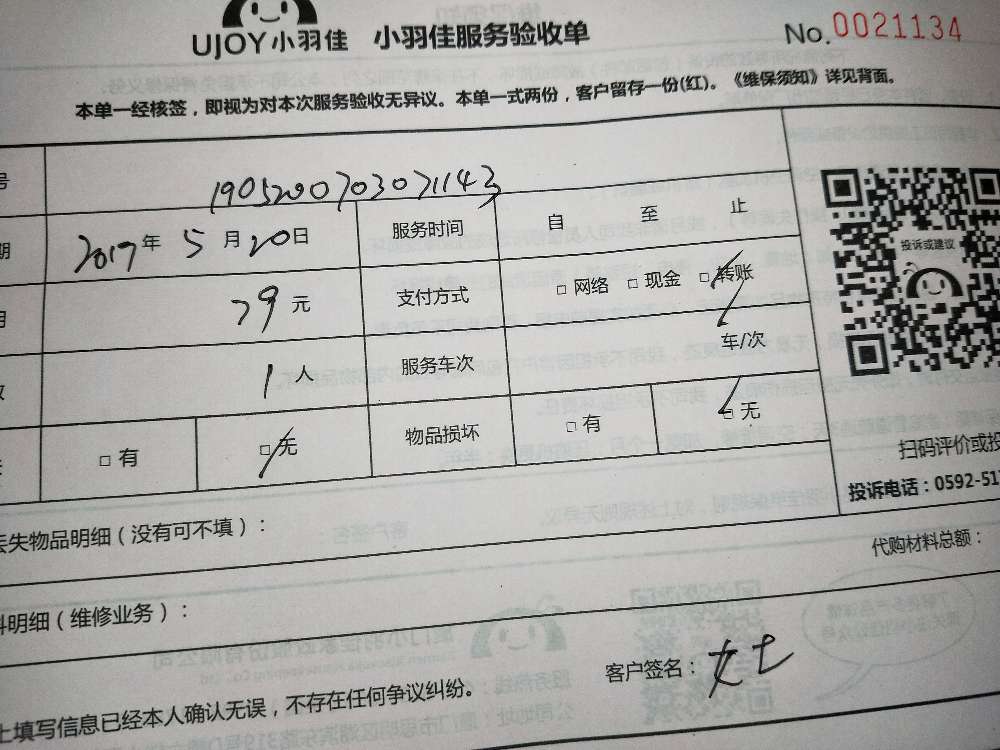 UJOY小羽佳 小羽佳服务验收单 No.0021134
本单一经核签，即视为对本次服务验收无异议。本单一式两份，客户留存一份(红)。《维保须知》详见背面。
号 1905200703071143
期 2017年 5月 20日 服务时间 自 至 止
投诉或建议
79元 支付方式 □网络 □现金 □转账
1人 服务车次 车/次
□有 □无 物品损坏 □有 □无
扫码评价或投
投诉电话：0592-51
丢失物品明细（没有可不填）：
代购材料总额：
料明细（维修业务）：
客户签名：女士
上填写信息已经本人确认无误，不存在任何争议纠纷。